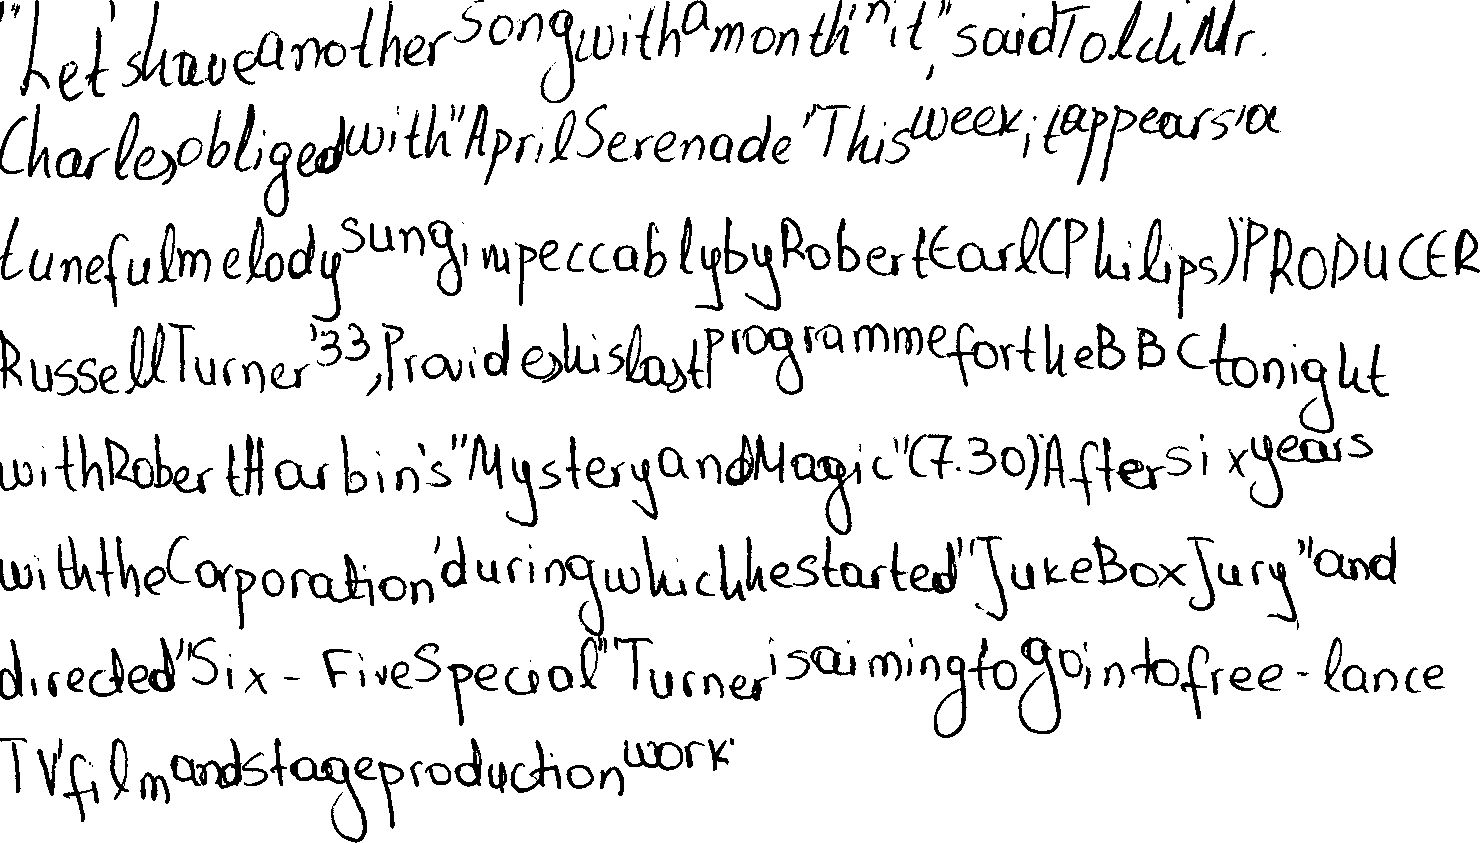 "Let's have another song with a month 'n it", said Tolch Mr.
Charles, obliged with "April Serenade' This week, it appears 'a
tuneful melody sung, impeccably by Robert Earl (Philips)' PRODUCER
Russell Turner '33, Provides his last programme for the BBC tonight
with Robert Harbin's "Mystery and Magic" (7.30) After six years
with the Corporation' during which he started "Juke Box Jury" and
directed "Six-Five Special" 'Turner is aiming to go into free-lance
TV' film and stage production work'